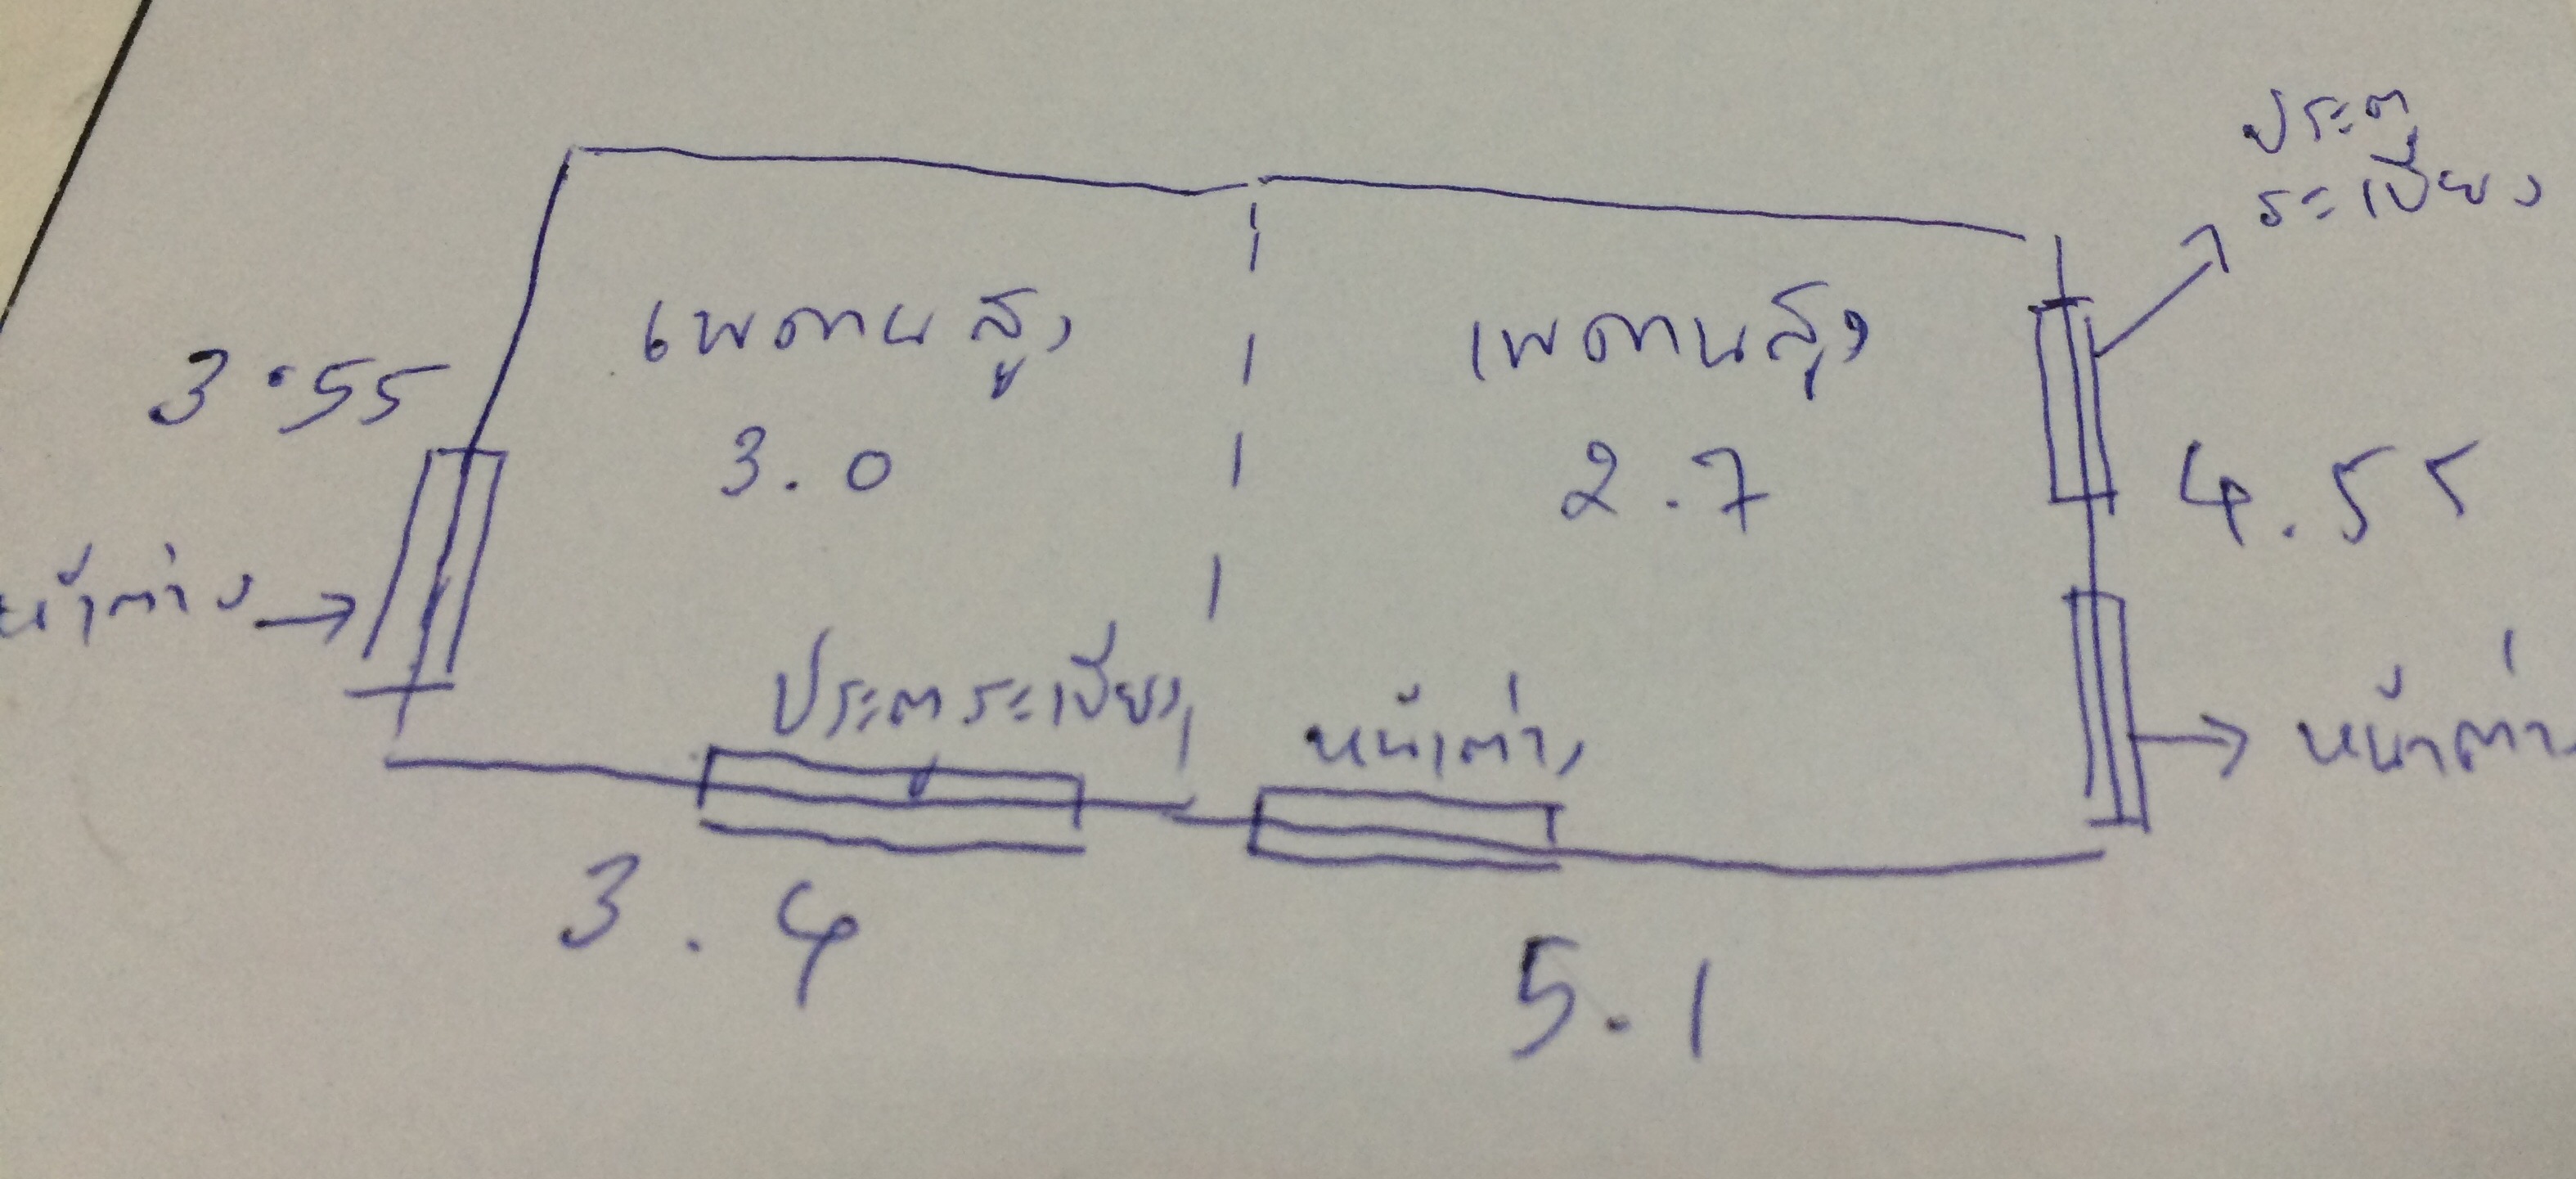 ประตู
ระเบียง
เพดานสูง
3.0
เพดานสูง
2.7
3.55
4.55
หน้าต่าง
ประตูระเบียง
หน้าต่าง
หน้าต่าง
3.4
5.1